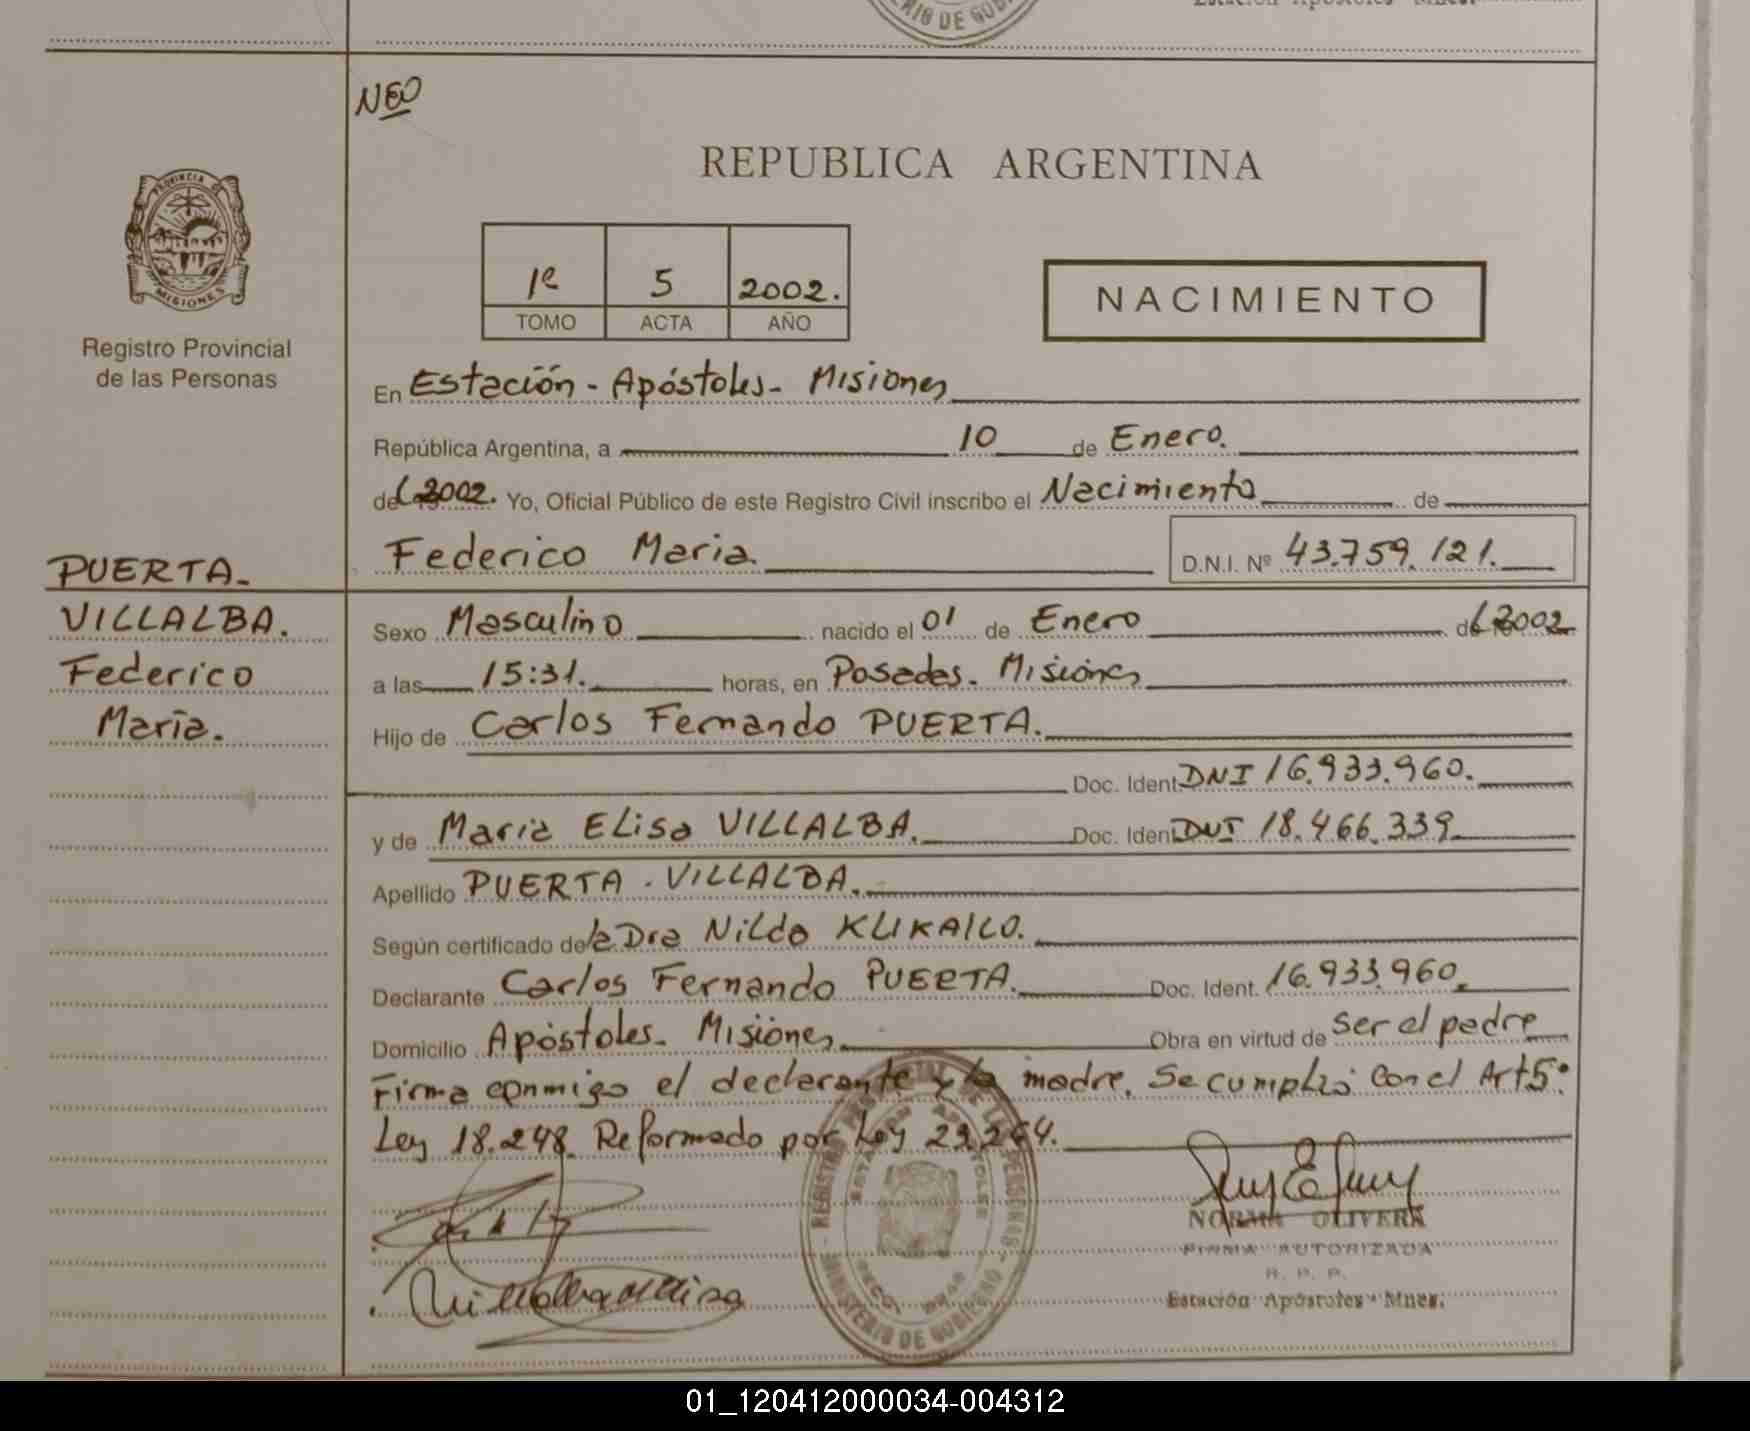 NEO
PROVINCIA DE
MISIONES
Registro Provincial
de las Personas
REPUBLICA ARGENTINA
1º 5 2002.
TOMO ACTA AÑO
NACIMIENTO
En Estación - Apóstoles - Misiones
República Argentina, a 10 de Enero.
del 2002. Yo, Oficial Público de este Registro Civil inscribo el Nacimiento de
Federico Maria. D.N.I. Nº 43.759.121.
PUERTA-
VILLALBA.
Federico
María.
Sexo Masculino nacido el 01 de Enero del 2002
a las 15:31. horas, en Posadas - Misiones
Hijo de Carlos Fernando PUERTA.
Doc. Ident. DNI 16.933.960.
y de Maria ELisa VILLALBA. Doc. Ident. DNI 18.466.339
Apellido PUERTA - VILLALBA.
Según certificado de la Dra Nilda
Declarante Carlos Fernando PUERTA. Doc. Ident. 16.933.960.
Domicilio Apóstoles - Misiones Obra en virtud de ser el padre
Firma conmigo el declarante y la madre. Se cumplió con el Art 5º
Ley 18.248. Reformado por Ley
NORMA OLIVERA
FIRMA AUTORIZADA
R. P. P.
Estación Apóstoles - Mnes.
MINISTERIO DE GOBIERNO
01_120412000034-004312